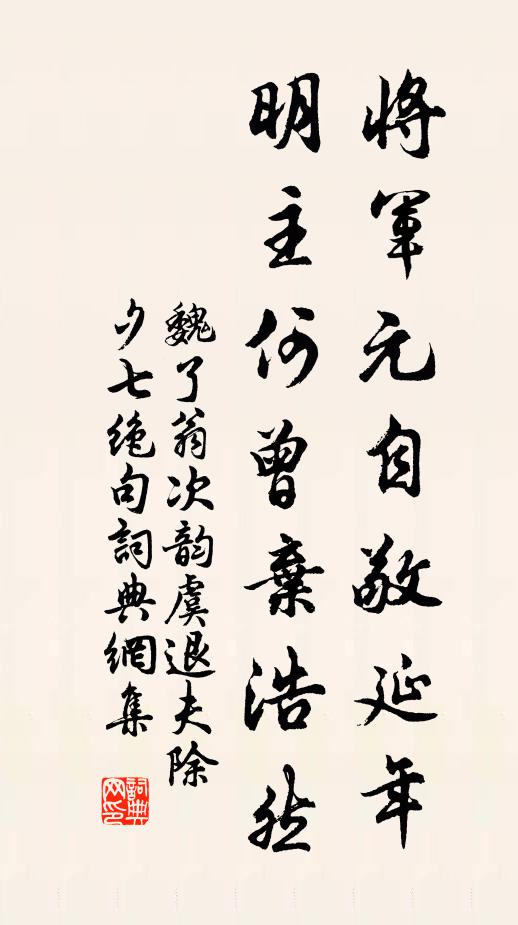 將軍元自敬延年
明主何曾棄浩然
魏了翁次韵虞退夫除
夕七绝句詞典網集
詞典网印